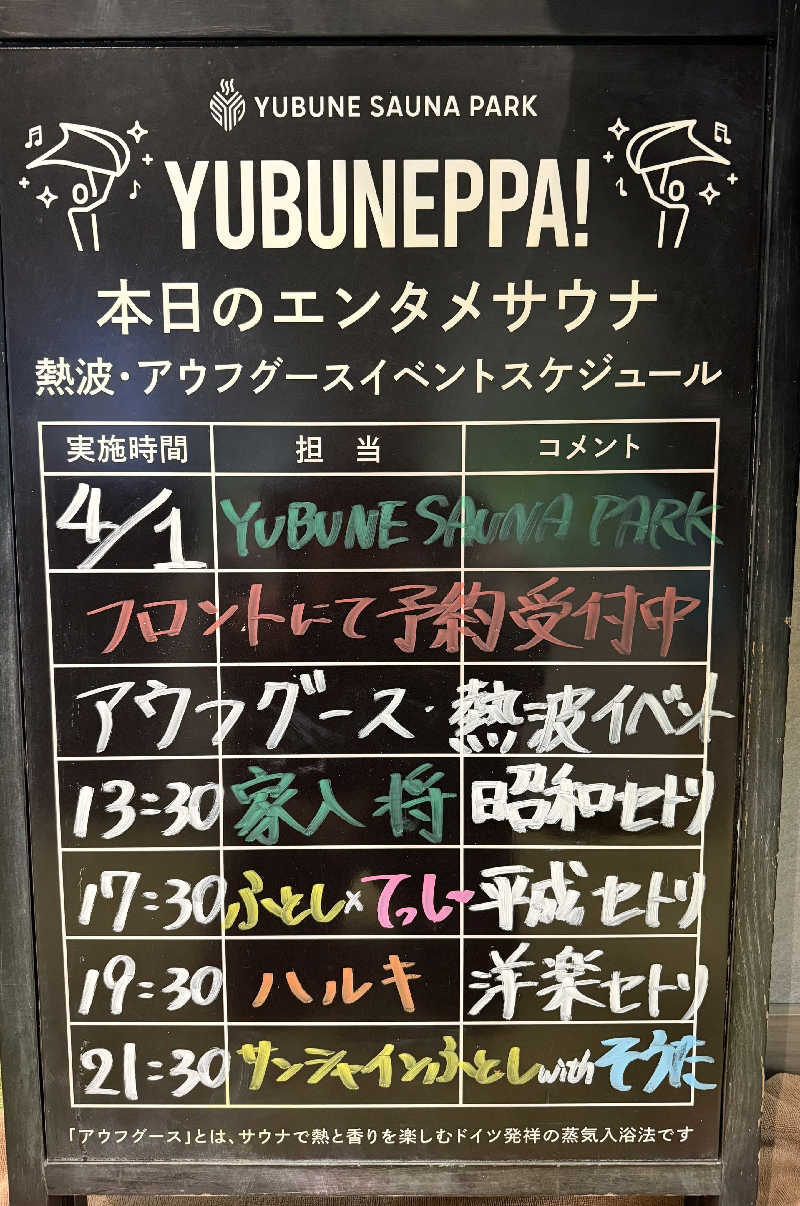 YUBUNE SAUNA PARK
YUBUNEPPA!
本日のエンタメサウナ
熱波・アウフグースイベントスケジュール
実施時間 担当 コメント
4/1 YUBUNE SAUNA PARK
フロントにて予約受付中
アウフグース・熱波イベント
13:30 家入 将 昭和セトリ
17:30 ふとし×てっしー 平成セトリ
19:30 ハルキ 洋楽セトリ
21:30 サンシャインふとしwithそうた
「アウフグース」とは、サウナで熱と香りを楽しむドイツ発祥の蒸気入浴法です